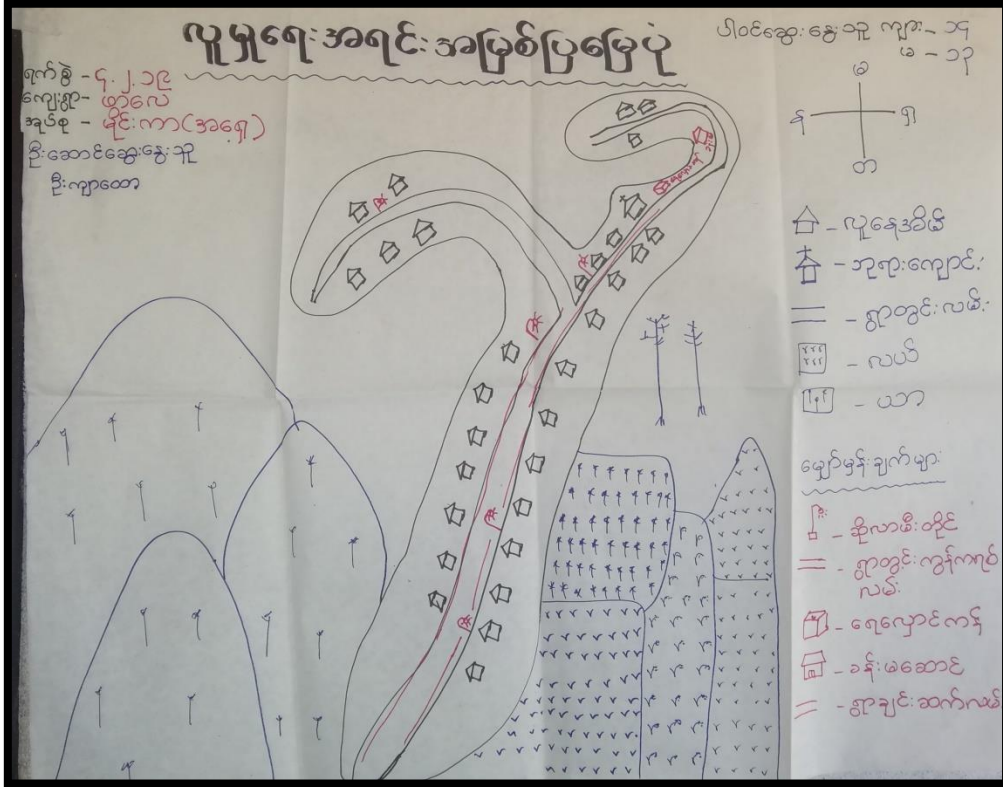 လူမှုရေးအရင်းအမြစ်ပြမြေပုံ
ပါဝင်ဆွေးနွေးသူ ကျား - ၁၄
မ - ၁၃
ရက်စွဲ - ၄.၂.၁၉
ကျေးရွာ - ဖာလေ
အုပ်စု - မိုင်းကာ(အရှေ့)
ဦးဆောင်ဆွေးနွေးသူ
ဦးကျာထော
မ
န
ရှ
တ
- လူနေအိမ်
- ဘုရားကျောင်း
- ရွာတွင်းလမ်း
- လယ်
- ယာ
မျှော်မှန်းချက်များ
- ဆိုလာမီးတိုင်
- ရွာတွင်းကွန်ကရစ်
လမ်း
- ရေလှောင်ကန်
- ခန်းမဆောင်
- ရွာချင်းဆက်လမ်း